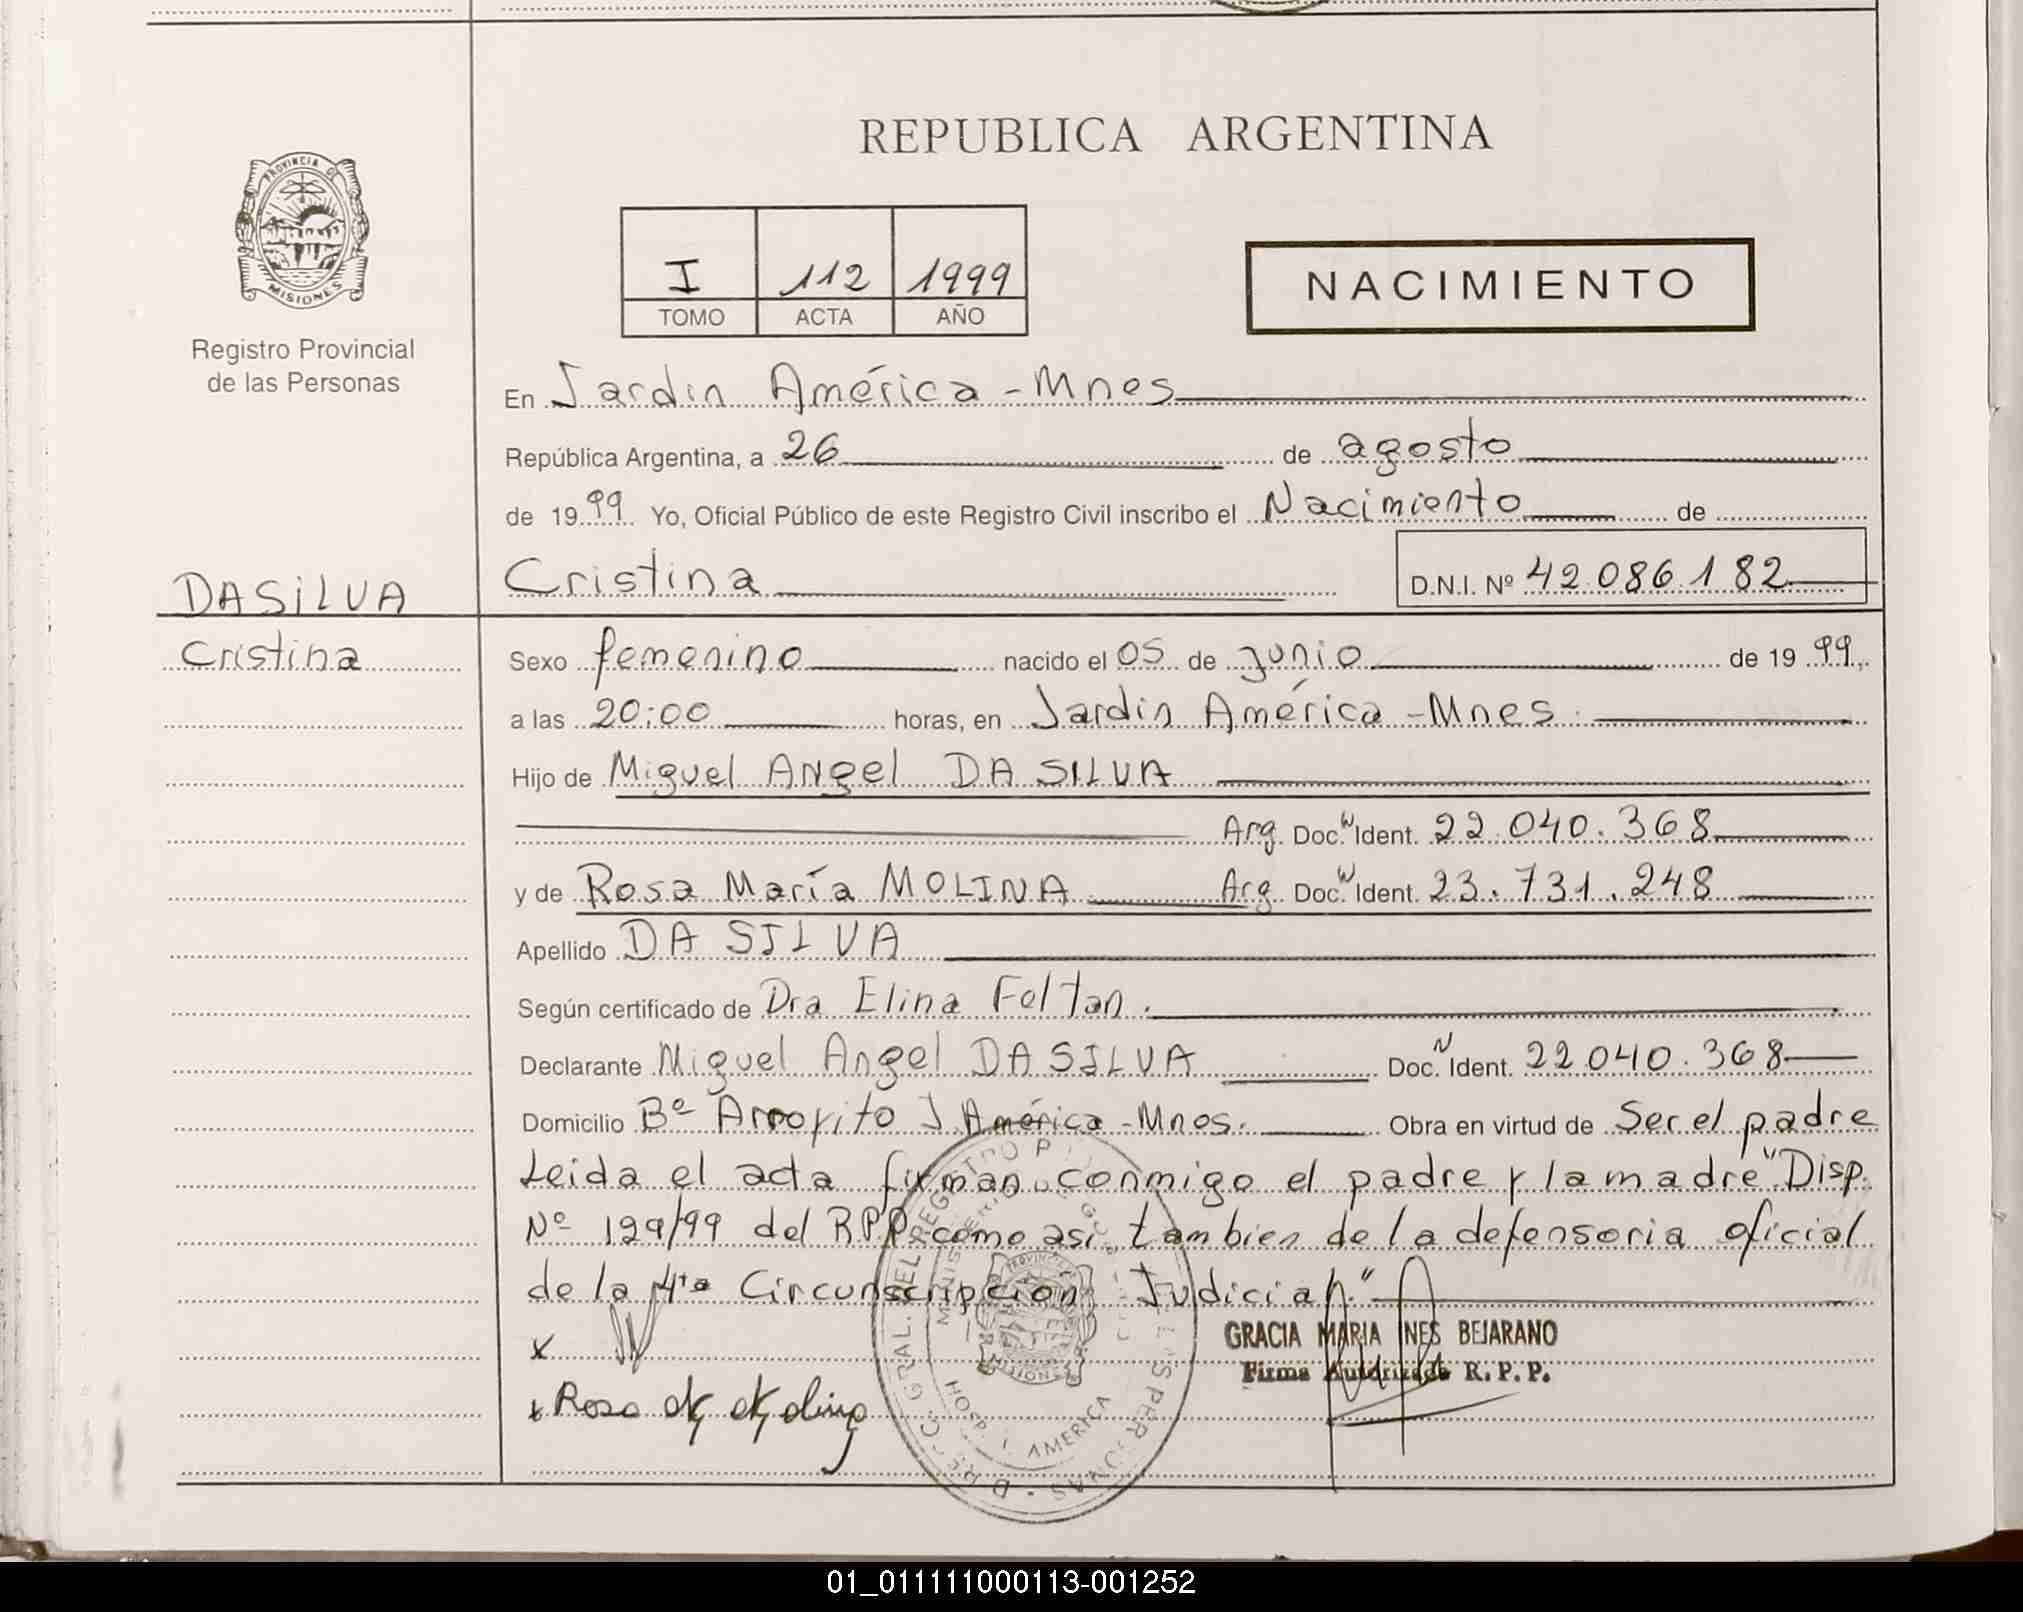 REPUBLICA ARGENTINA
PROVINCIA DE
MISIONES
Registro Provincial
de las Personas
I 112 1999
TOMO ACTA AÑO
NACIMIENTO
En Jardin América - Mnes
República Argentina, a 26 de agosto
de 1999 Yo, Oficial Público de este Registro Civil inscribo el Nacimiento de
Cristina D.N.I. Nº 42.086.182
DA SILVA
Cristina
Sexo femenino nacido el 05 de junio de 1999
a las 20:00 horas, en Jardin América - Mnes
Hijo de Miguel Angel DA SILVA
Arg. Doc. Ident. 22.040.368
y de Rosa María MOLINA Arg. Doc. Ident. 23.731.248
Apellido DA SILVA
Según certificado de Dra Elina Feltan.
Declarante Miguel Angel DA SILVA Doc. N Ident. 22.040.368
Domicilio Bº Arroyito J América - Mnes. Obra en virtud de Ser el padre
Leida el acta firman conmigo el padre y la madre "Disp.
Nº 129/99 del RPP como asi tambien de la defensoria oficial
de la 4ta Circunscripción Judicial"
x
x Rosa M Molina
GRACIA MARIA INES BEJARANO
Firma Autorizada R. P. P.
HOSP. J. AMERICA
01_011111000113-001252